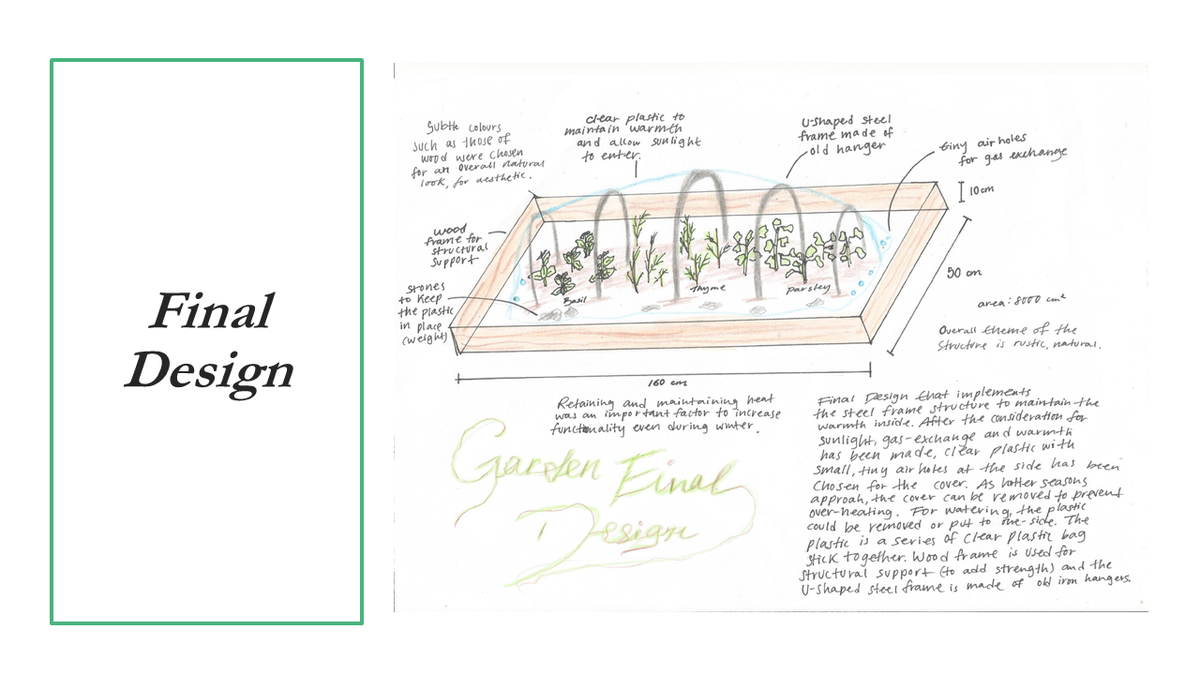 Final
Design
Subtle colours
such as those of
wood were chosen
for an overall natural
look, for aesthetic.
clear plastic to
maintain warmth
and allow sunlight
to enter.
U-shaped steel
frame made of
old hanger
tiny air holes
for gas exchange
10cm
wood
frame for
structural
support
stones
to keep
the plastic
in place
(weight)
Basil
Thyme
parsley
50 cm
area: 8000 cm²
Overall theme of the
structure is rustic, natural.
160 cm
Retaining and maintaining heat
was an important factor to increase
functionality even during winter.
Garden Final
Design
Final Design that implements
the steel frame structure to maintain the
warmth inside. After the consideration for
sunlight, gas-exchange and warmth
has been made, clear plastic with
small, tiny air holes at the side has been
chosen for the cover. As hotter seasons
approah, the cover can be removed to prevent
over-heating. For watering, the plastic
could be removed or put to one-side. The
plastic is a series of clear plastic bag
stick together. Wood frame is used for
structural support (to add strength) and the
U-shaped steel frame is made of old iron hangers.